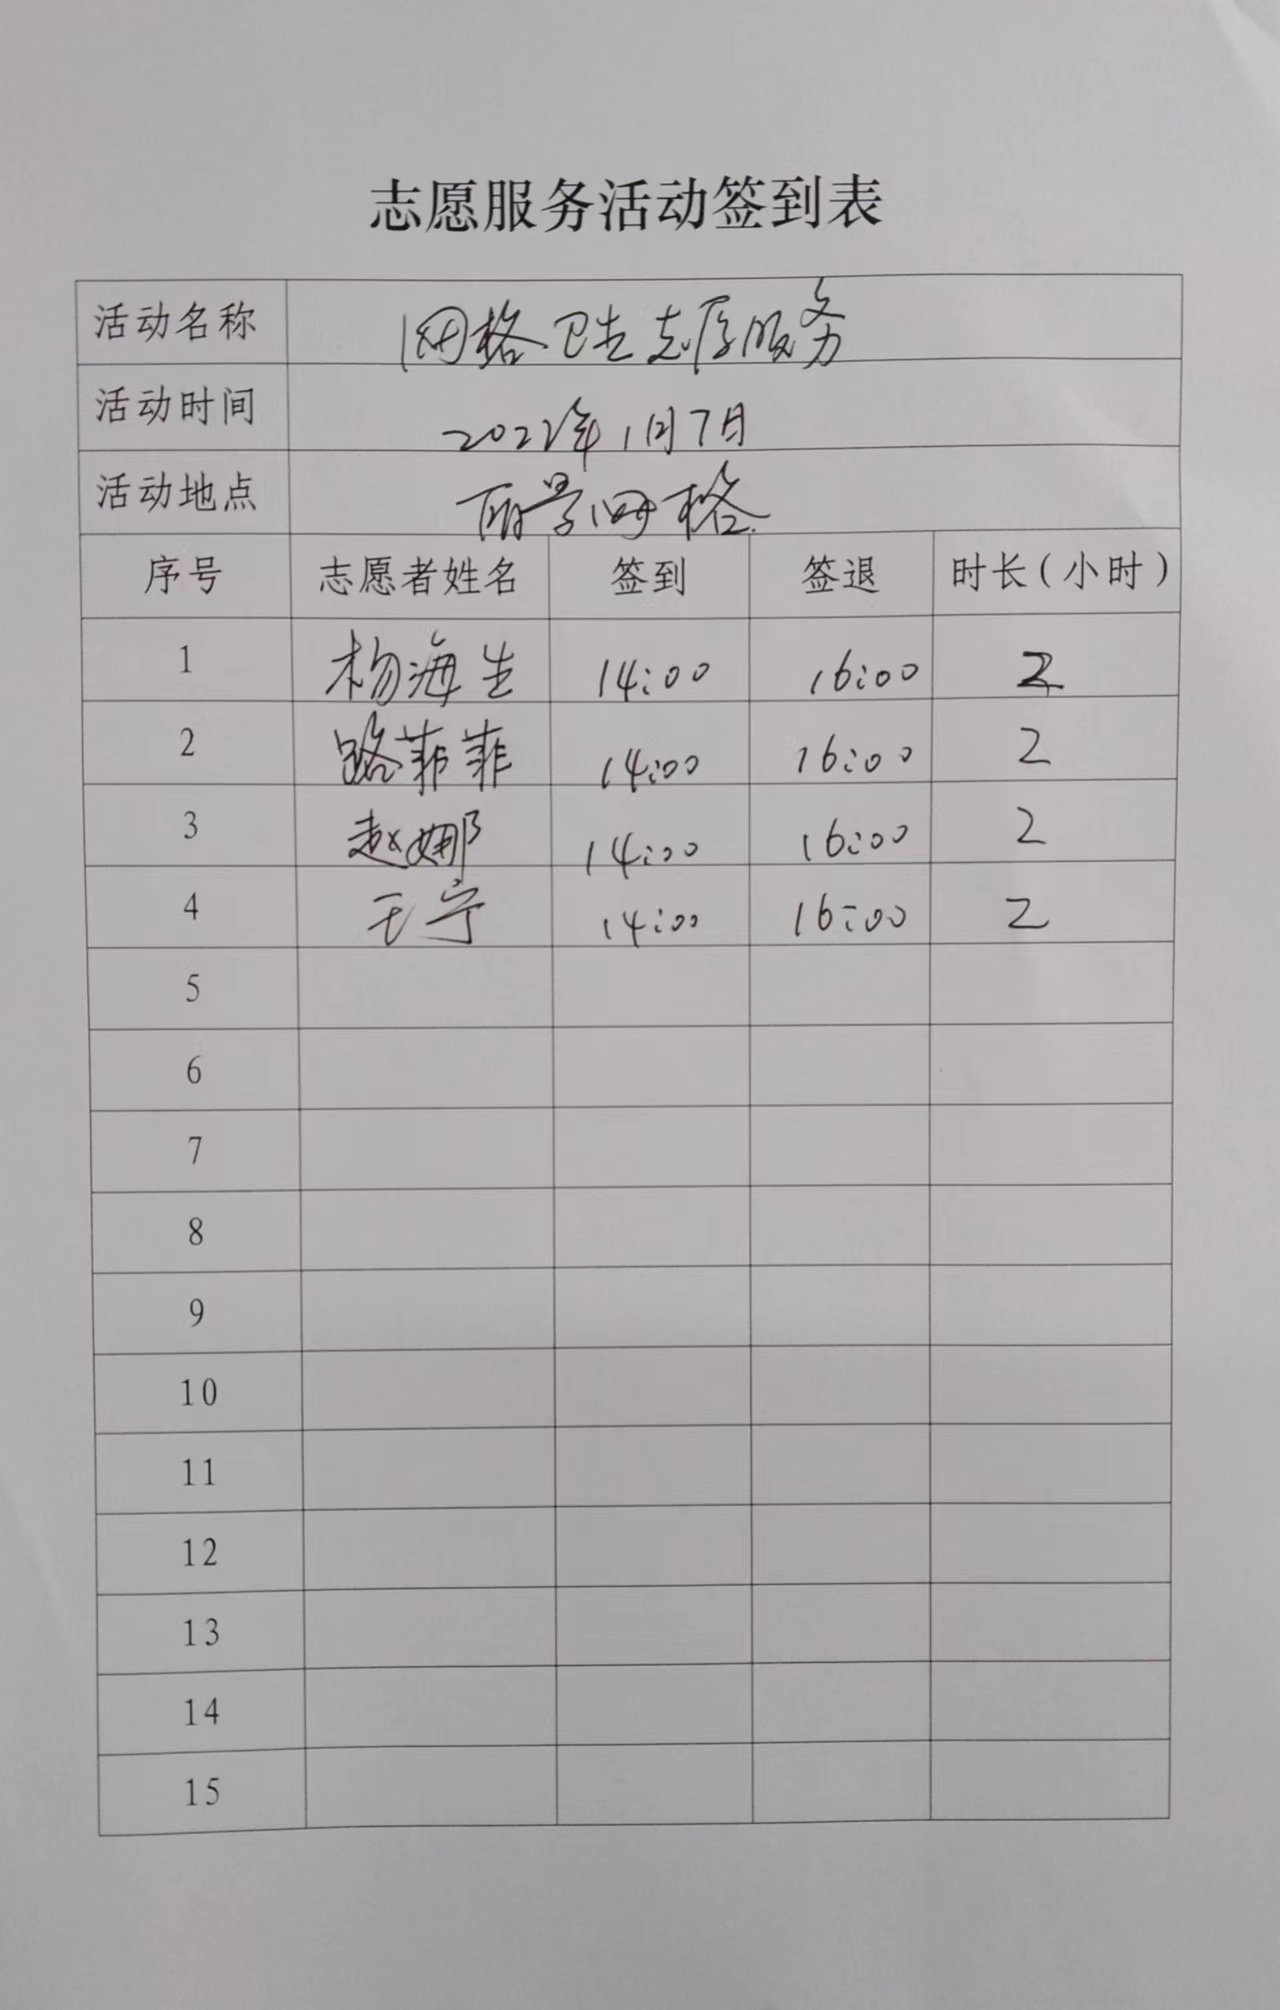 志愿服务活动签到表
活动名称 网格卫生志愿服务
活动时间 2022年1月7日
活动地点 丽景网格
序号 志愿者姓名 签到 签退 时长(小时)
1 杨海生 14:00 16:00 2
2 路菲菲 14:00 16:00 2
3 赵娜 14:00 16:00 2
4 王宁 14:00 16:00 2
5
6
7
8
9
10
11
12
13
14
15